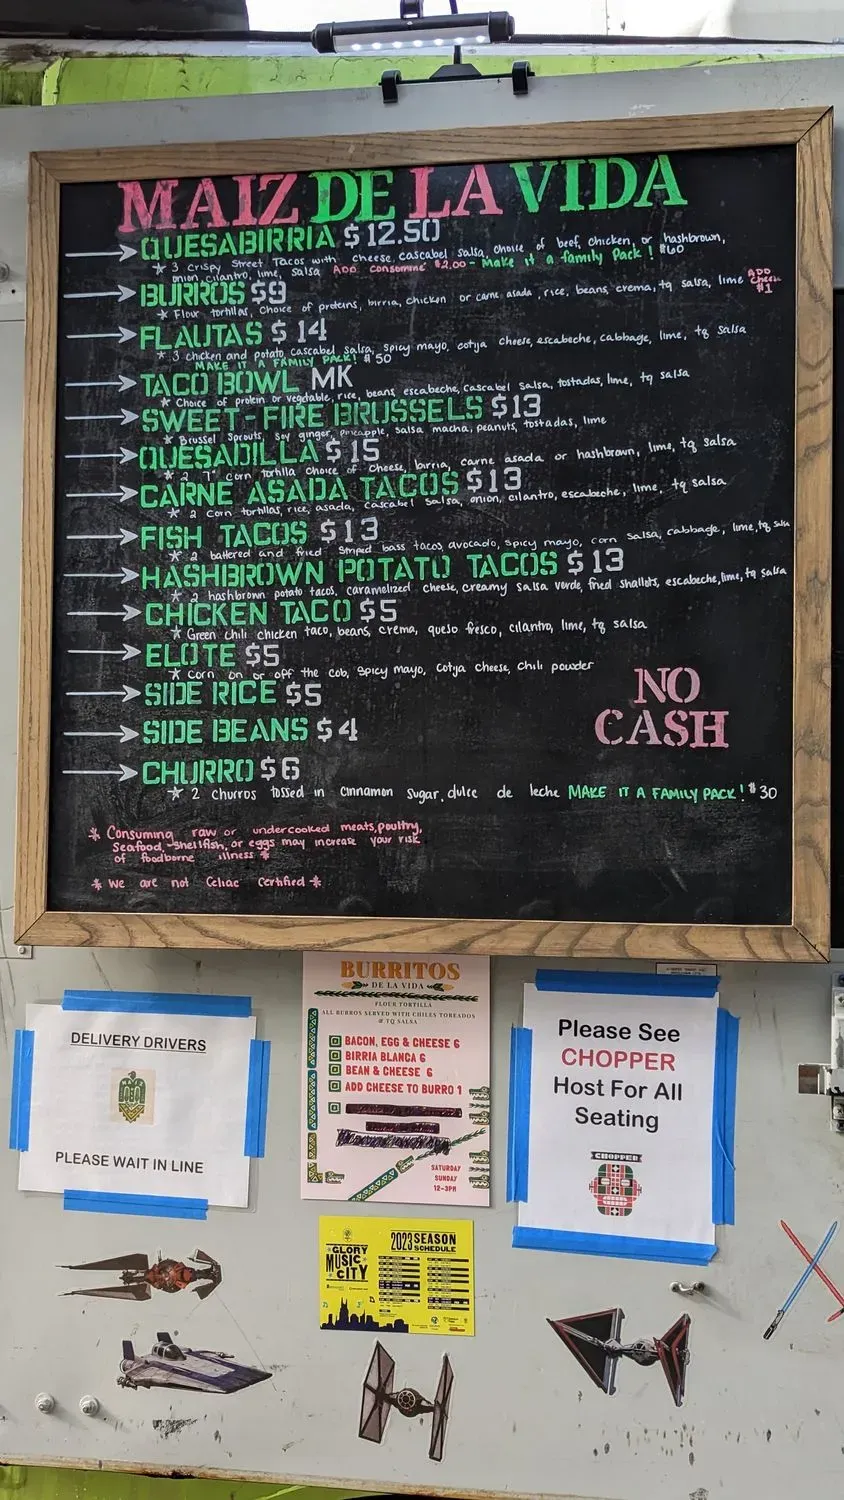 MAIZ DE LA VIDA
QUESABIRRIA $12.50
* 3 crispy Street Tacos with cheese, cascabel salsa, choice of beef, chicken, or hashbrown,
onion, cilantro, lime, salsa ADD consommé $2.00 - Make it a family Pack! $60
BURROS $9
* Flour tortillas, Choice of proteins, birria, chicken or carne asada, rice, beans, crema, tq salsa, lime ADD Cheese $1
FLAUTAS $14
* 3 chicken and potato cascabel salsa, spicy mayo, cotija cheese, escabeche, cabbage, lime, tq salsa
MAKE IT A FAMILY PACK! $50
TACO BOWL MK
* Choice of protein or vegetable, rice, beans escabeche, cascabel salsa, tostadas, lime, tq salsa
SWEET-FIRE BRUSSELS $13
* Brussel Sprouts, Soy ginger, pineapple, Salsa macha, peanuts, tostadas, lime
QUESADILLA $15
* 2 7" corn tortilla choice of cheese, birria, carne asada or hashbrown, lime, tq salsa
CARNE ASADA TACOS $13
* 2 corn tortillas, rice, asada, cascabel salsa, onion, cilantro, escabeche, lime, tq salsa
FISH TACOS $13
* 2 battered and fried striped bass tacos, avocado, spicy mayo, corn salsa, cabbage, lime, tq salsa
HASHBROWN POTATO TACOS $13
* 2 hashbrown potato tacos, caramelized cheese, creamy salsa verde, fried shallots, escabeche, lime, tq salsa
CHICKEN TACO $5
* Green chili chicken taco, beans, crema, queso fresco, cilantro, lime, tq salsa
ELOTE $5
* corn on or off the cob, spicy mayo, cotija cheese, chili powder
SIDE RICE $5
SIDE BEANS $4
CHURRO $6
* 2 churros tossed in cinnamon sugar, dulce de leche MAKE IT A FAMILY PACK! $30
NO
CASH
* Consuming raw or undercooked meats, poultry,
Seafood, Shellfish, or eggs may increase your risk
of foodborne illness *
* We are not Celiac Certified *
DELIVERY DRIVERS
PLEASE WAIT IN LINE
BURRITOS
DE LA VIDA
FLOUR TORTILLA
ALL BURROS SERVED WITH CHILES TOREADOS
& TQ SALSA
BACON, EGG & CHEESE 6
BIRRIA BLANCA 6
BEAN & CHEESE 6
ADD CHEESE TO BURRO 1
SATURDAY
SUNDAY
12-3PM
Please See
CHOPPER
Host For All
Seating
CHOPPER
GLORY
MUSIC
CITY
2023 SEASON
SCHEDULE